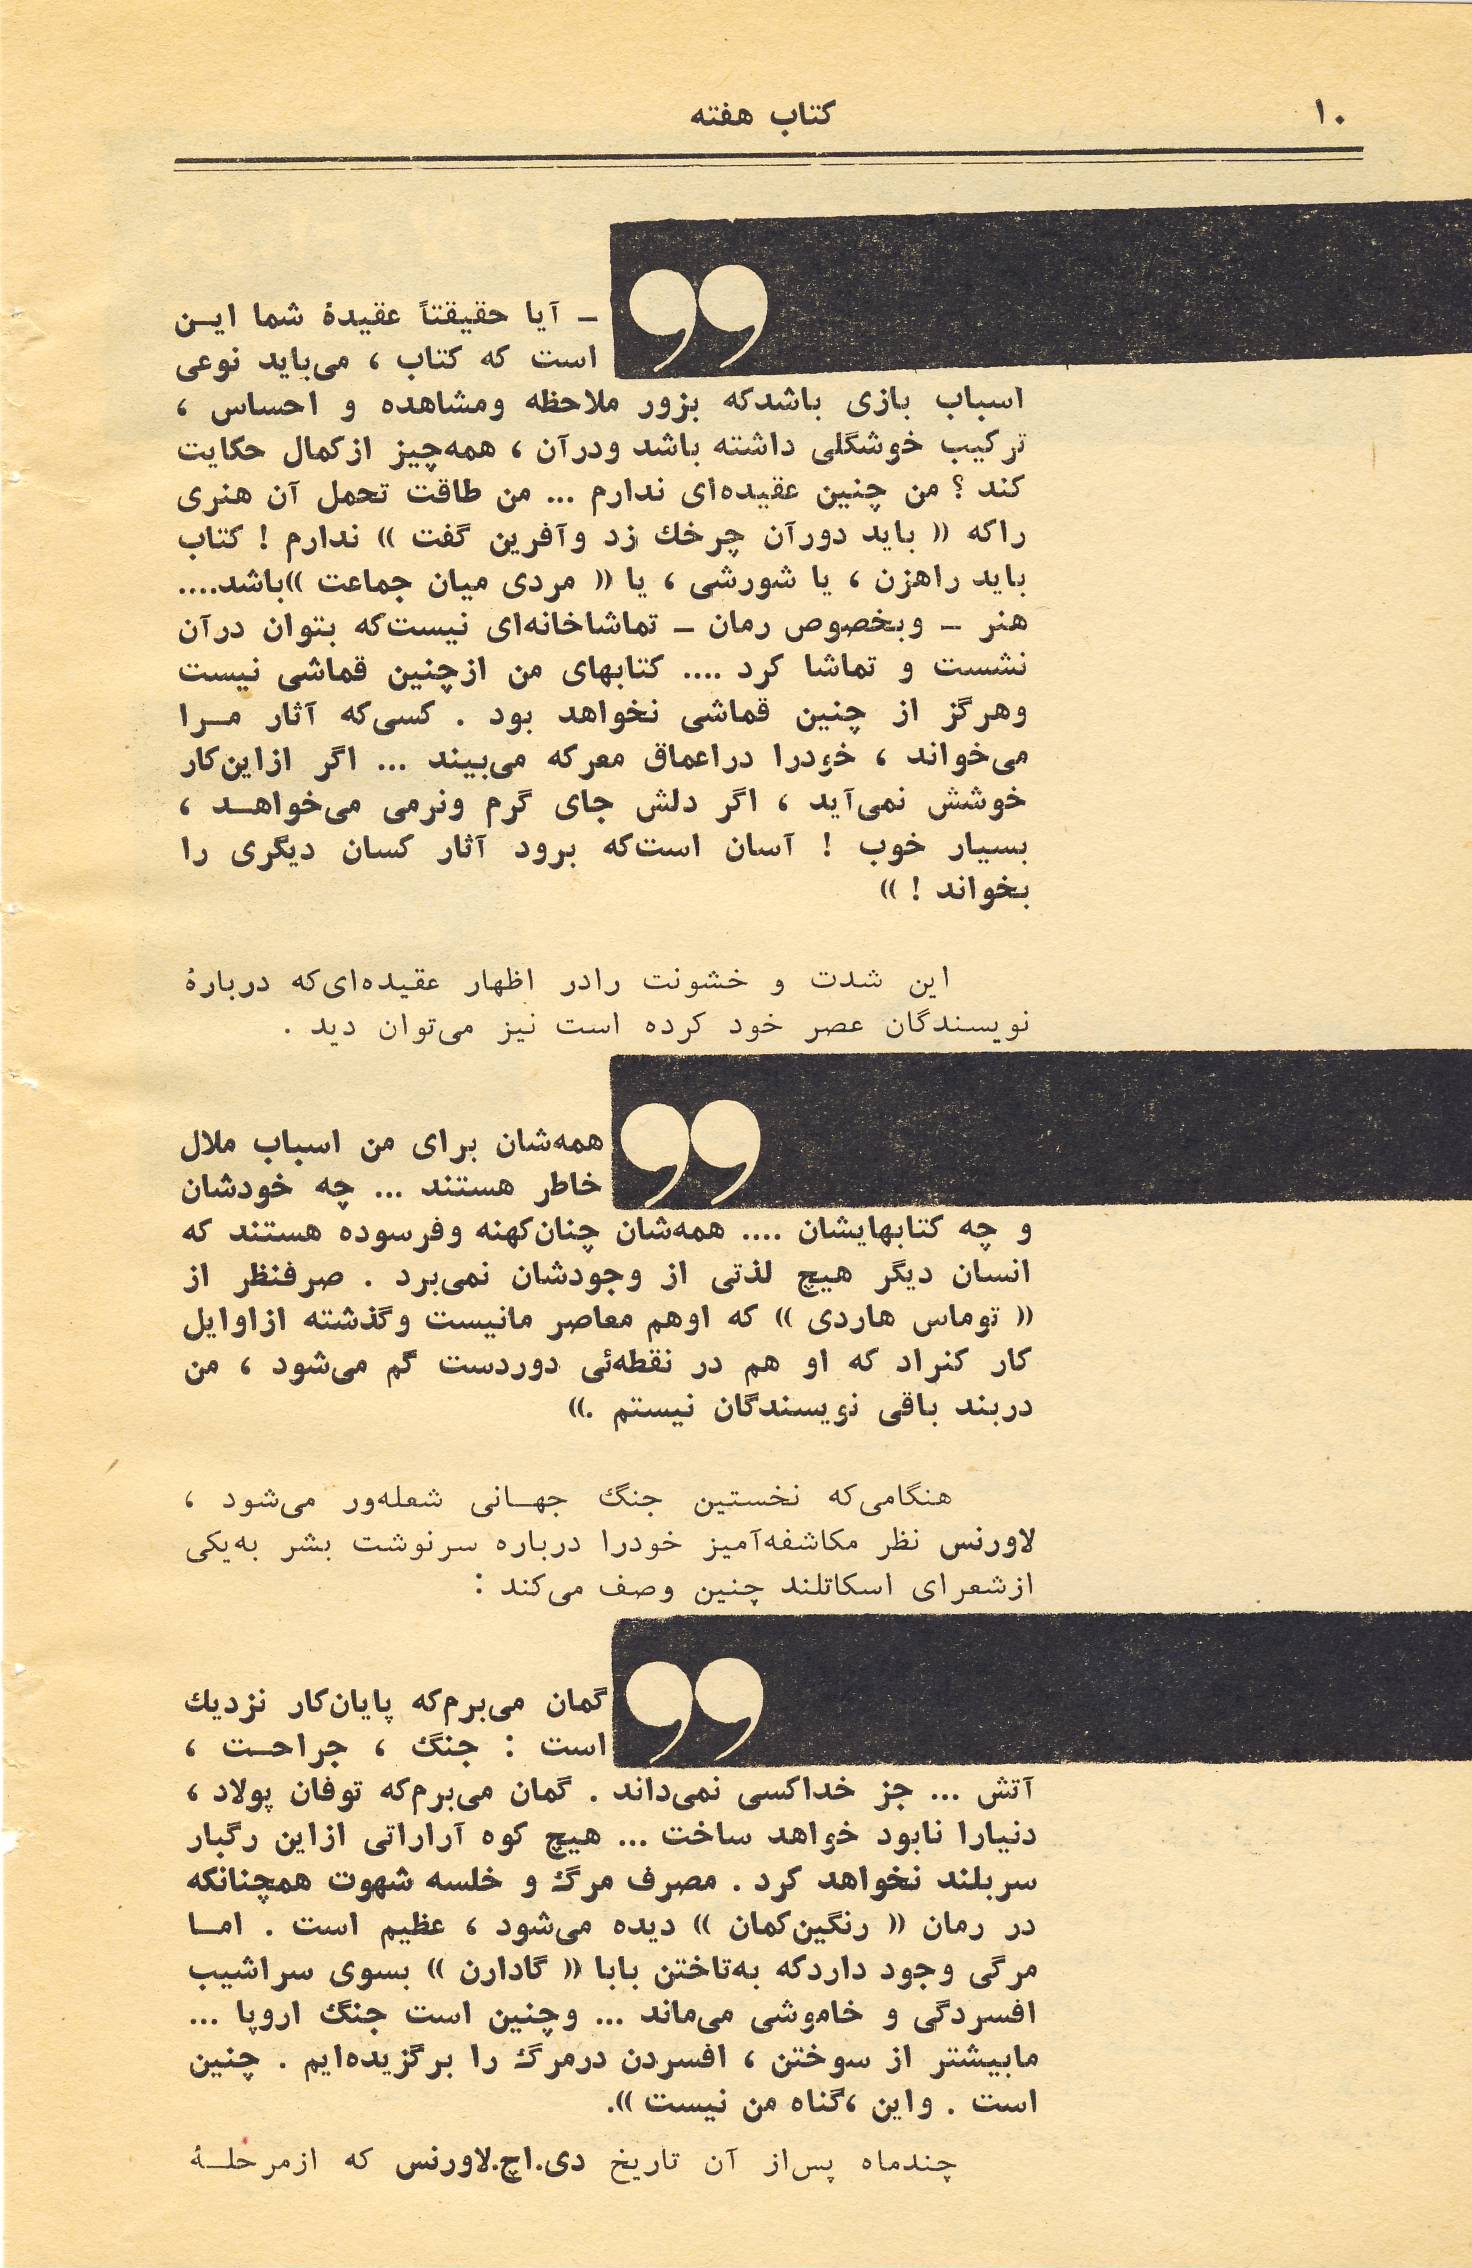 ۱۰
کتاب هفته
ـ آیا حقیقتاً عقیدهٔ شما ایـن
است که کتاب ، می‌باید نوعی
اسباب بازی باشدکه بزور ملاحظه ومشاهده و احساس ،
ترکیب خوشگلی داشته باشد ودرآن ، همه‌چیز ازکمال حکایت
کند ؟ من چنین عقیده‌ای ندارم ... من طاقت تحمل آن هنری
راکه « باید دورآن چرخك زد وآفرین گفت » ندارم ! کتاب
باید راهزن ، یا شورشی ، یا « مردی میان جماعت »باشد....
هنر ـ وبخصوص رمان ـ تماشاخانه‌ای نیست‌که بتوان درآن
نشست و تماشا کرد .... کتابهای من ازچنین قماشی نیست
وهرگز از چنین قماشی نخواهد بود . کسی‌که آثار مـرا
می‌خواند ، خودرا دراعماق معرکه می‌بیند ... اگر ازاین‌کار
خوشش نمی‌آید ، اگر دلش جای گرم ونرمی می‌خواهـد ،
بسیار خوب ! آسان است‌که برود آثار کسان دیگری را
بخواند ! »
این شدت و خشونت رادر اظهار عقیده‌ای‌که دربارهٔ
نویسندگان عصر خود کرده است نیز می‌توان دید .
همه‌شان برای من اسباب ملال
خاطر هستند ... چه خودشان
و چه کتابهایشان .... همه‌شان چنان‌کهنه وفرسوده هستند که
انسان دیگر هیچ لذتی از وجودشان نمی‌برد . صرفنظر از
« توماس هاردی » که اوهم معاصر مانیست وگذشته ازاوایل
کار کنراد که او هم در نقطه‌ئی دوردست گم می‌شود ، من
دربند باقی نویسندگان نیستم .»
هنگامی‌که نخستین جنگ جهـانی شعله‌ور می‌شود ،
لاورنس نظر مکاشفه‌آمیز خودرا درباره سرنوشت بشر به‌یکی
ازشعرای اسکاتلند چنین وصف می‌کند :
گمان می‌برم‌که پایان‌کار نزدیك
است : جنگ ، جراحـت ،
آتش ... جز خداکسی نمی‌داند . گمان می‌برم‌که توفان پولاد ،
دنیارا نابود خواهد ساخت ... هیچ کوه آراراتی ازاین رگبار
سربلند نخواهد کرد . مصرف مرگ و خلسه شهوت همچنانکه
در رمان « رنگین‌کمان » دیده می‌شود ، عظیم است . امـا
مرگی وجود داردکه به‌تاختن بابا « گادارن » بسوی سراشیب
افسردگی و خاموشی می‌ماند ... وچنین است جنگ اروپا ...
مابیشتر از سوختن ، افسردن درمرگ را برگزیده‌ایم . چنین
است . واین ،گناه من نیست ».
چندماه پس‌از آن تاریخ دی.اچ.لاورنس که ازمرحلـهٔ